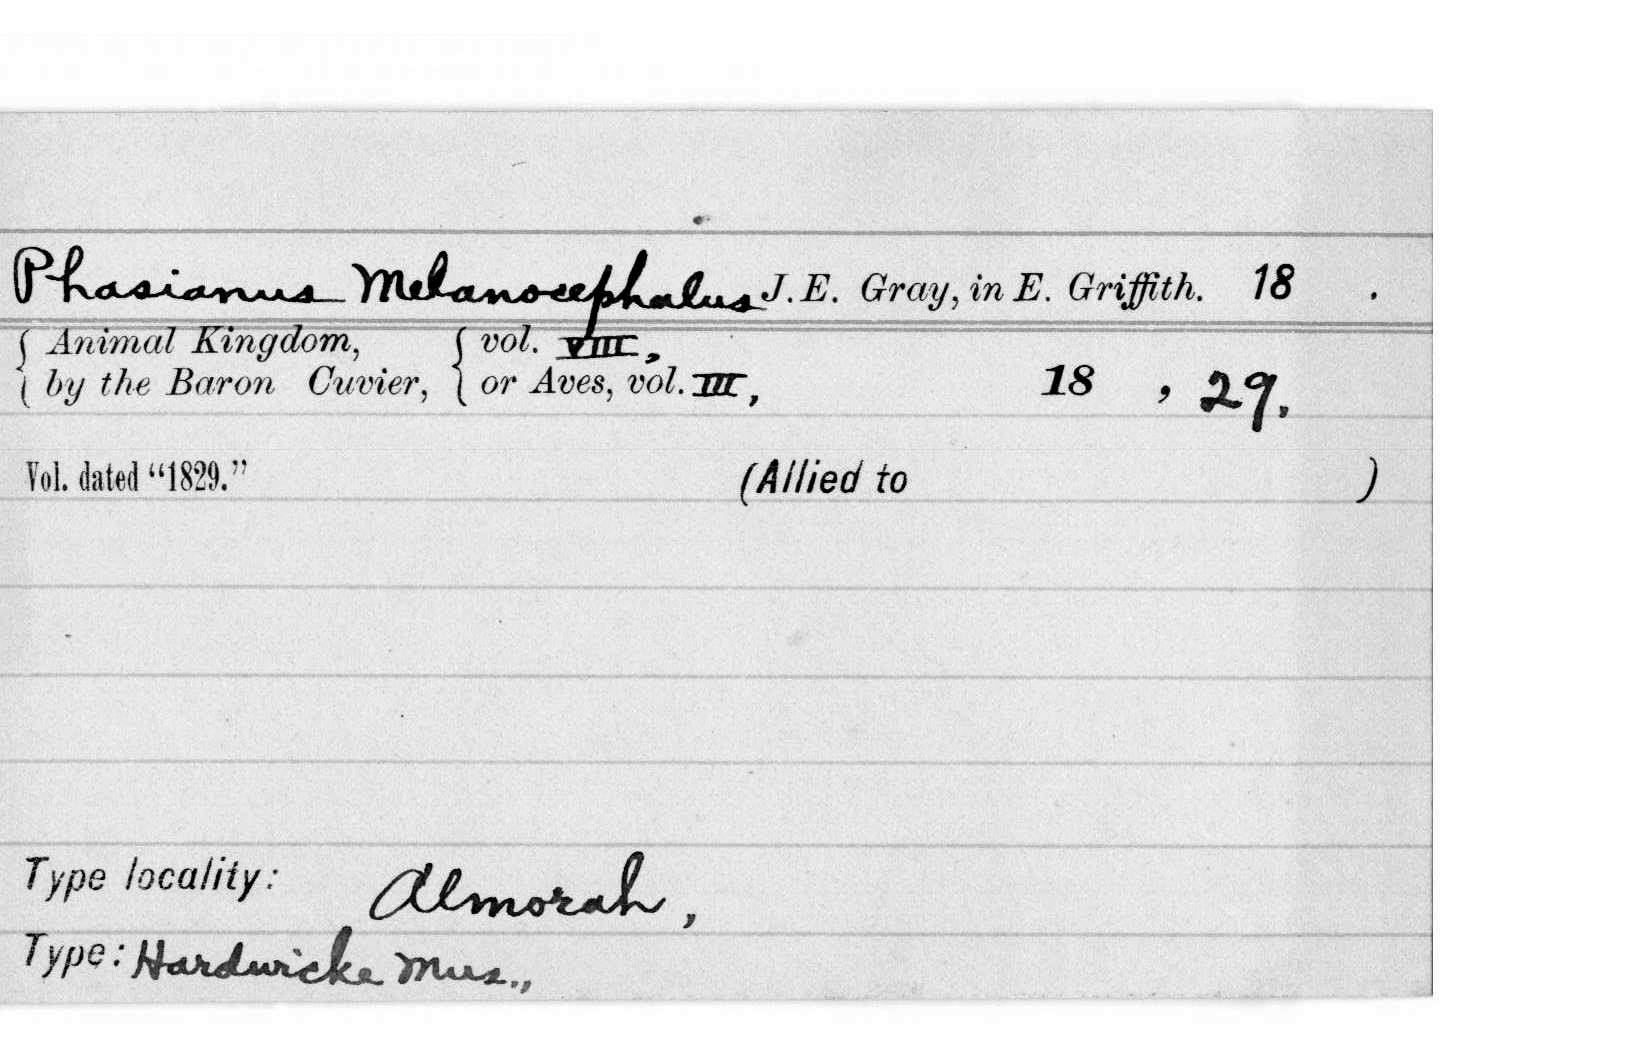 Phasianus Melanocephalus J. E. Gray, in E. Griffith. 18 .
{ Animal Kingdom, { vol. VIII,
{ by the Baron Cuvier, { or Aves, vol. III, 18 , 29.
Vol. dated “1829.” (Allied to )
Type locality: Almorah,
Type: Hardwicke Mus.,